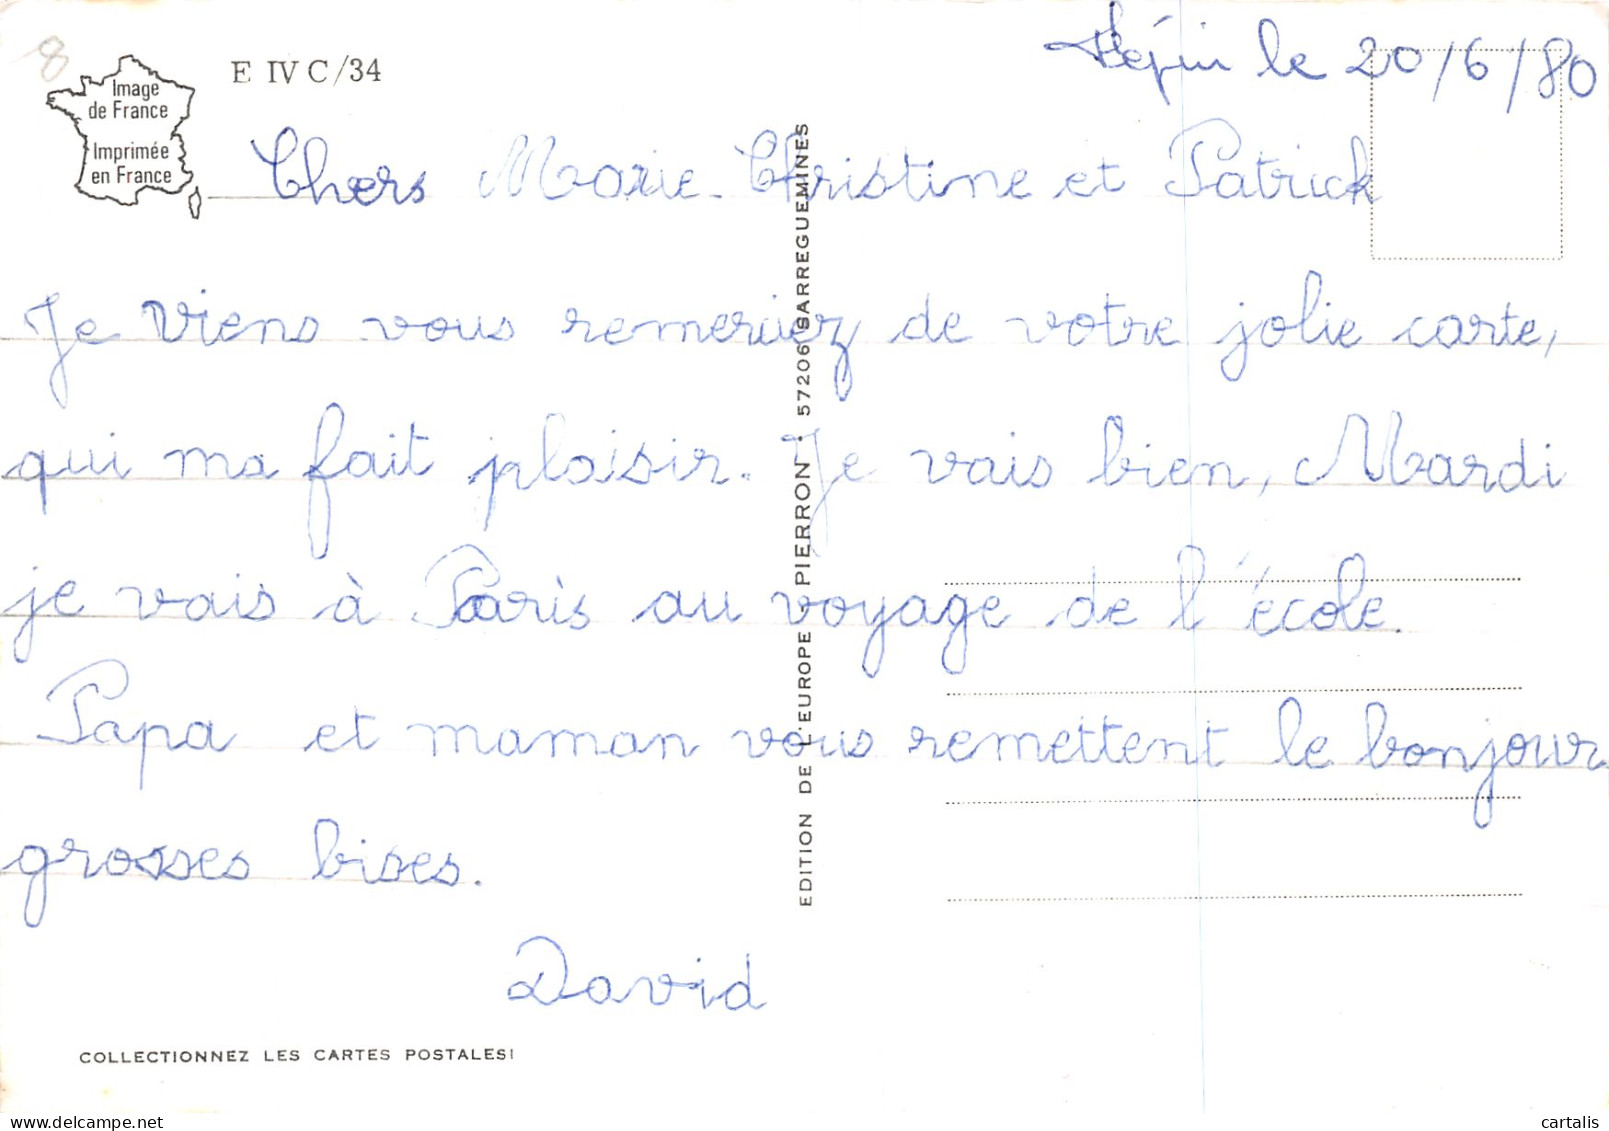 8
Image
de France
Imprimée
en France
E IV C/34
le 20/6/80
Chers Marie-Christine et Patrick
Je viens vous remerciez de votre jolie carte,
qui ma fait plaisir. Je vais bien, Mardi
je vais à Paris au voyage de l'école.
Papa et maman vous remettent le bonjour
grosses bises.
David
EDITION DE L'EUROPE - PIERRON - 57206 SARREGUEMINES
COLLECTIONNEZ LES CARTES POSTALES!
cartalis